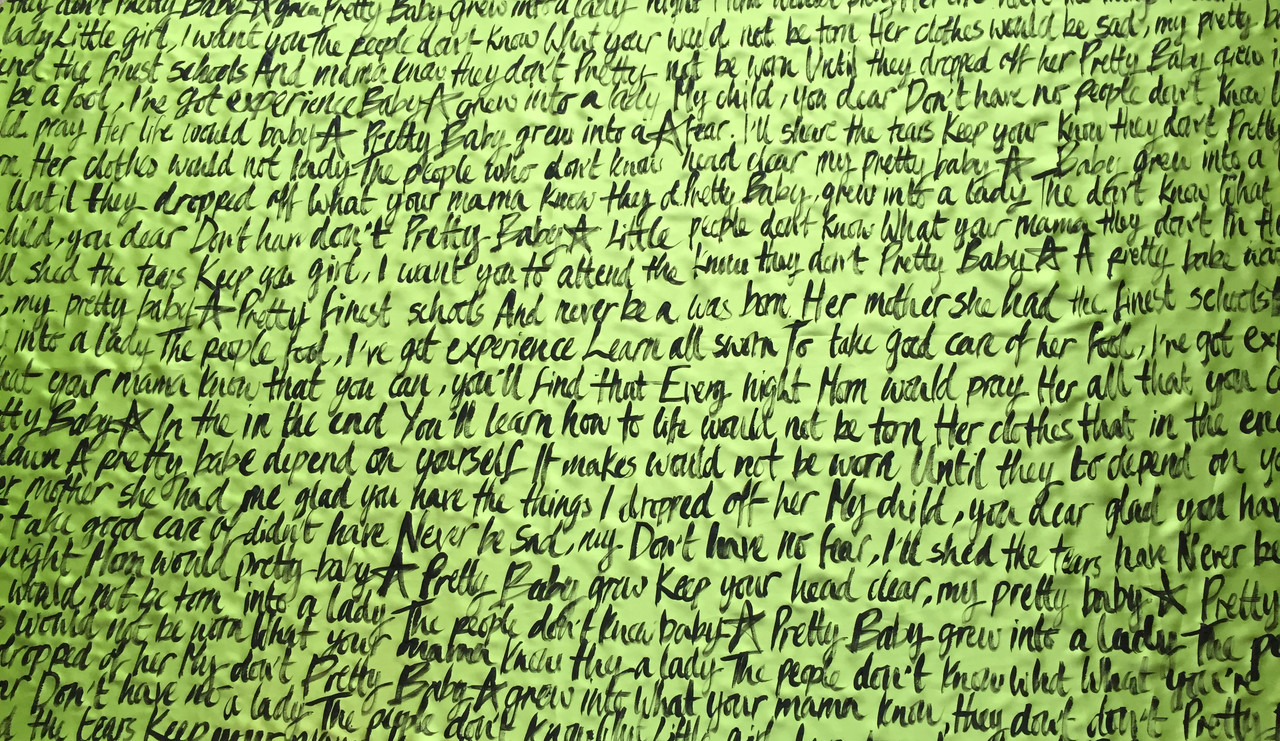 they don't Pretty Baby☆grew Pretty Baby grew into a lady night Mom would pray Her life
lady Little girl, I want you The people don't Know What your would not be torn Her clothes would be sad, my pretty
the finest schools And mama know they don't Pretty not be worn Until they dropped off her Pretty Baby grew
be a fool, I've got experience Baby☆ grew into a lady My child, you dear Don't have no people don't Know
pray Her life would baby☆ Pretty Baby grew into a ☆fear. I'll share the tears Keep your Know they don't
Her clothes would not lady The people who don't know head clear my pretty baby☆ Baby grew into a
Until they dropped off What your mama Know they Pretty Baby, grew into a lady The don't Know What
child, you dear Don't don't Pretty Baby☆ Little people don't Know What your mama they don't In
shed the tears Keep you girl, I want you to attend the Know they don't Pretty Baby☆ A pretty babe
, my pretty baby☆ Pretty finest schools And never be a was born Her mother she had the finest schools
into a lady The people fool, I've got experience Learn all sworn To take good care of her fool, I've got
your mama Know that you can, you'll find that Every night Mom would pray Her all that you
Baby☆ In the in the end You'll learn how to life would not be torn Her clothes that in the
A pretty babe depend on yourself It makes would not be worn Until they to depend on
mother she had me glad you have the things I dropped off her My child, you dear glad you
take good care of didn't have Never be sad, my Don't have no fear, I'll shed the tears have Never be
night Mom would pretty baby☆ Pretty Baby grew Keep your head clear, my pretty baby☆ Pretty
would not be torn into a lady The people don't Know baby☆ Pretty Baby grew into a lady The
would not be worn What your mama Know they a lady The people don't Know What What you're
dropped of her My don't Pretty Baby☆ grew into What your mama know, they don't don't Pretty
Don't have no a lady The people don't Know What Little girl,
the tears Keep your